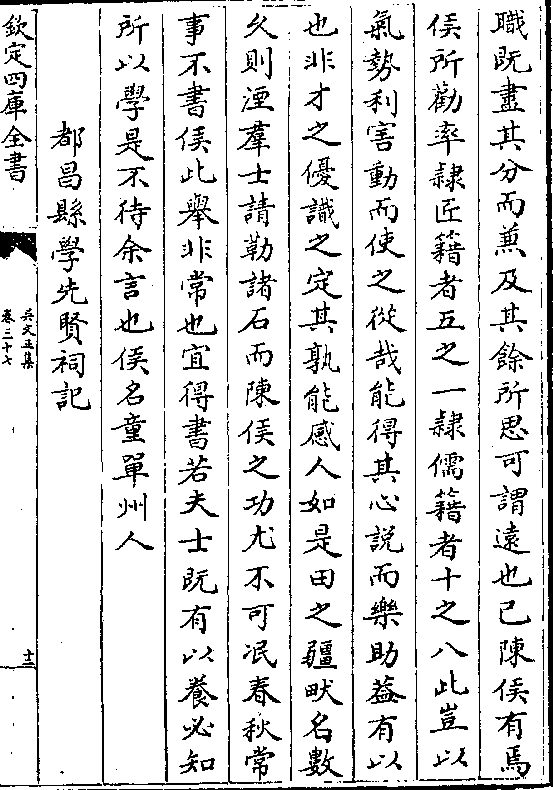 職既盡其分而兼及其餘所思可謂遠也已陳侯有焉
侯所勸率隷匠籍者五之一隷儒籍者十之八此豈以
氣勢利害動而使之從哉能得其心說而樂助葢有以
也非才之優識之定其孰能感人如是田之疆畎名數
久則湮羣士請勒諸石而陳侯之功尤不可冺春秋常
事不書侯此舉非常也宜得書若夫士既有以養必知
所以學是不待余言也侯名童單州人
都昌縣學先賢祠記
欽定四庫全書
吳文正集
卷三十七
十三